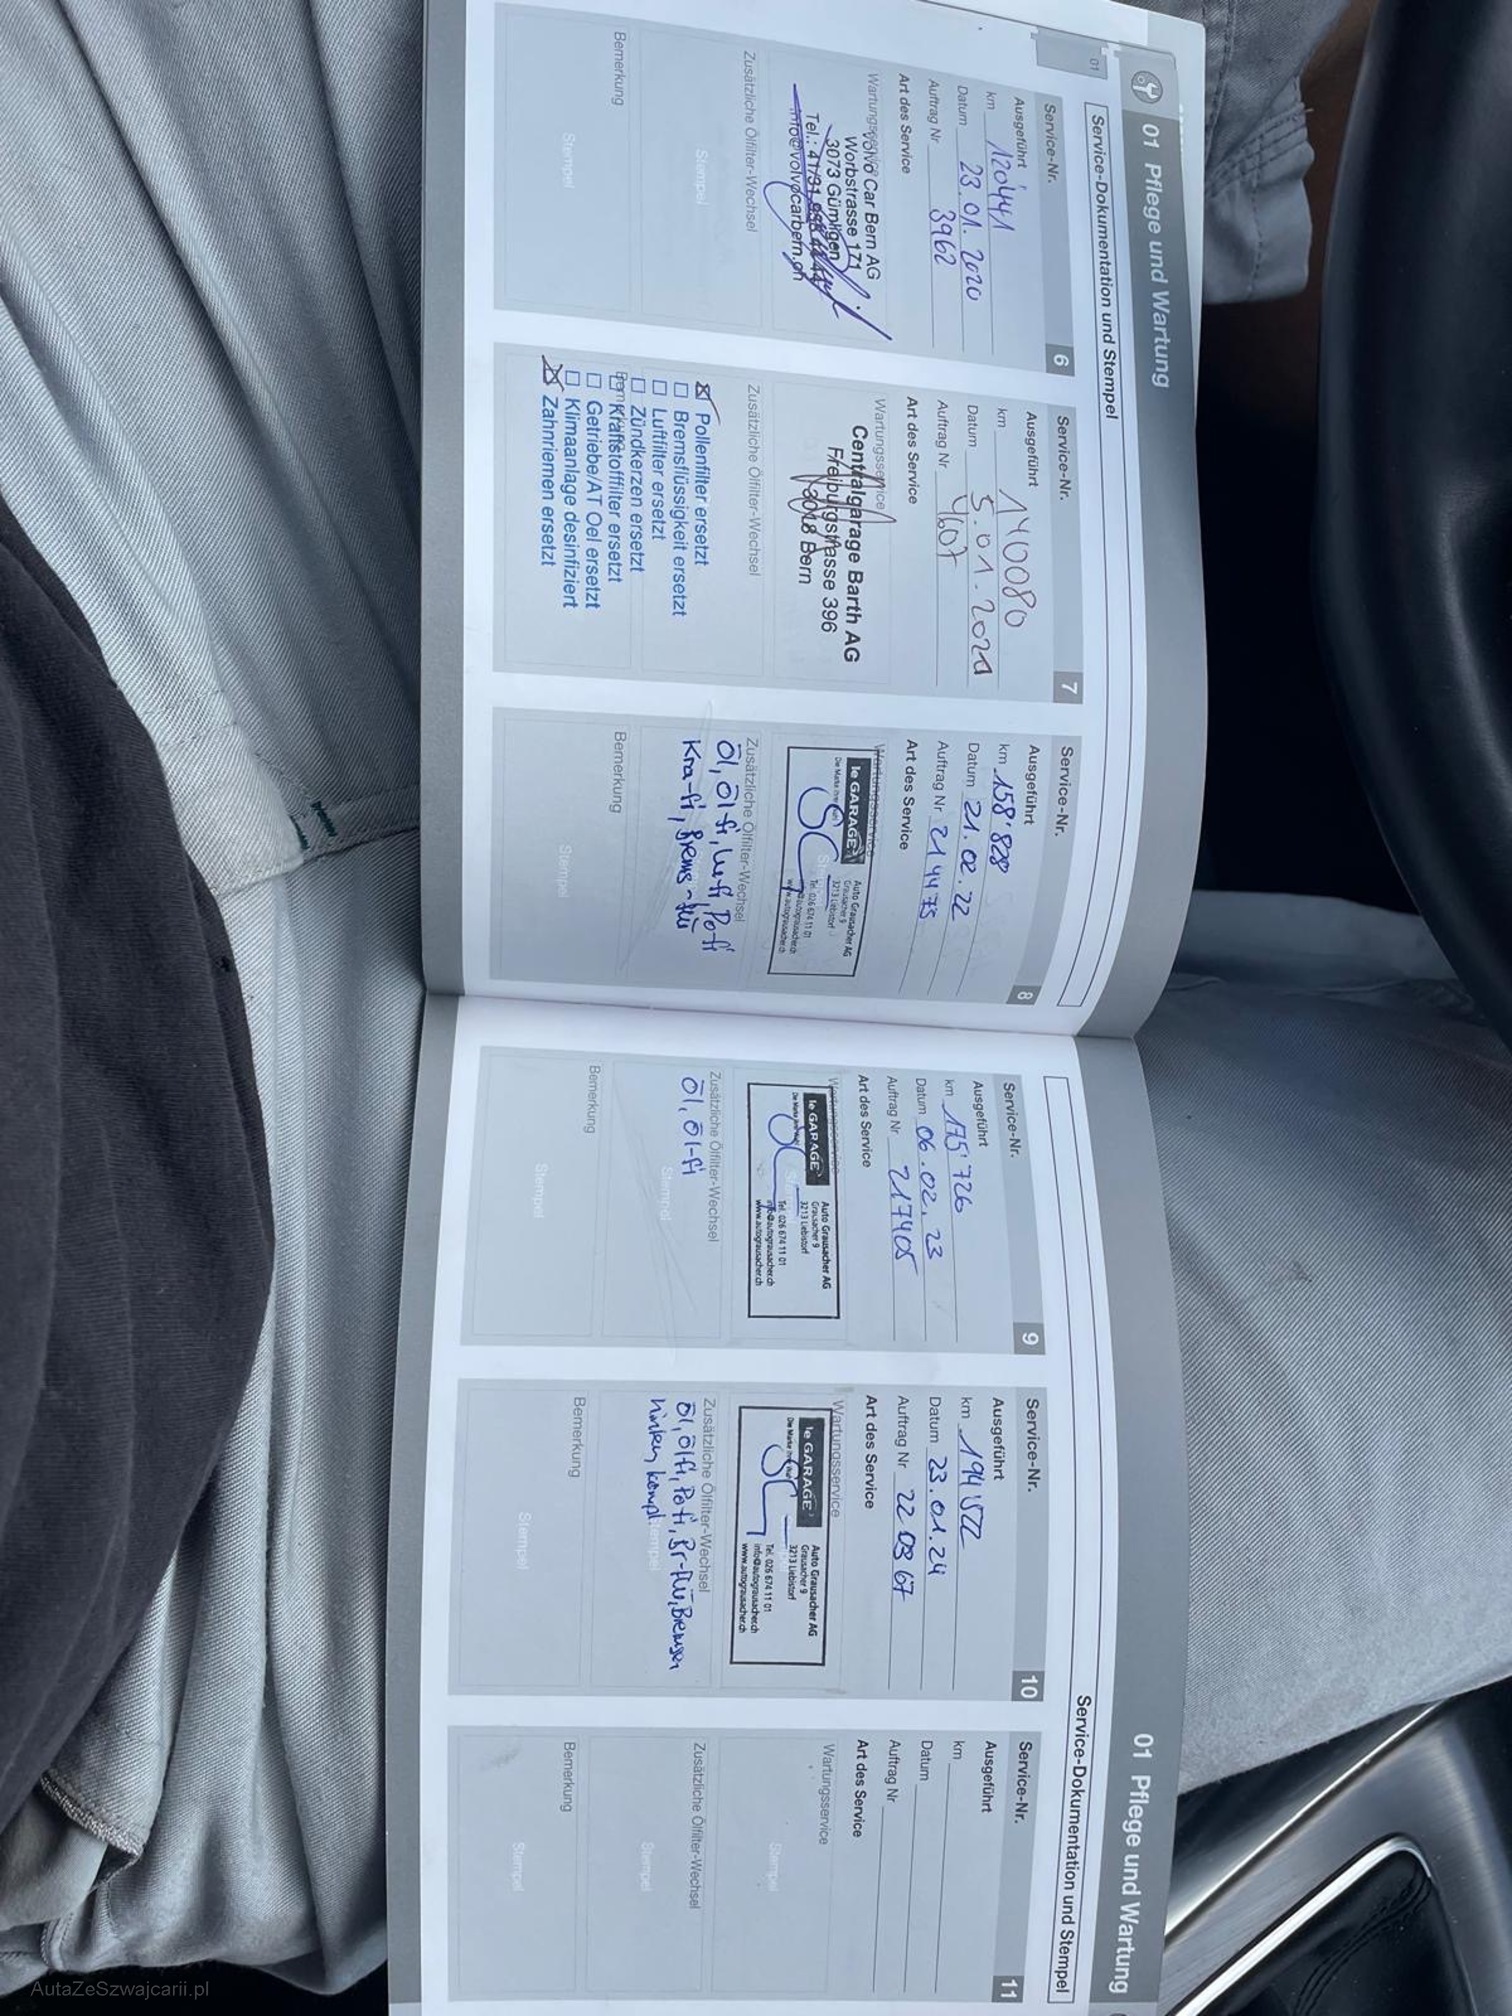 01 Pflege und Wartung
Service-Dokumentation und Stempel
01
Service-Nr. 6
Ausgeführt
km 120'441
Datum 23.01.2020
Auftrag Nr 3962
Art des Service
Wartungsservice
Volvo Car Bern AG
Worbstrasse 171
3073 Gümligen
Tel.: 41/31
info@volvocarbern.ch
Zusätzliche Ölfilter-Wechsel
Stempel
Bemerkung
Stempel
Service-Nr. 7
Ausgeführt
km 140080
Datum 5.01.2021
Auftrag Nr 4607
Art des Service
Wartungsservice
Centralgarage Barth AG
Freiburgstrasse 396
3018 Bern
Zusätzliche Ölfilter-Wechsel
Pollenfilter ersetzt
Bremsflüssigkeit ersetzt
Luftfilter ersetzt
Zündkerzen ersetzt
Bemerkung
Kraftstofffilter ersetzt
Getriebe/AT Oel ersetzt
Klimaanlage desinfiziert
Zahnriemen ersetzt
Service-Nr. 8
Ausgeführt
km 158'828
Datum 21.02.22
Auftrag Nr 214475
Art des Service
Wartungsservice
le GARAGE
Auto Grausacher AG
Grausacher 9
3213 Liebistorf
Tel. 026 674 11 01
www.autograusacher.ch
Zusätzliche Ölfilter-Wechsel
Öl, Öl-fi, Lufi, Pofi
Kra-fi, Brems-flü
Bemerkung
Stempel
01 Pflege und Wartung
Service-Dokumentation und Stempel
Service-Nr. 9
Ausgeführt
km 175'726
Datum 06.02.23
Auftrag Nr 217405
Art des Service
Wartungsservice
le GARAGE
Auto Grausacher AG
Grausacher 9
3213 Liebistorf
Tel. 026 674 11 01
info@autograusacher.ch
www.autograusacher.ch
Zusätzliche Ölfilter-Wechsel
Öl, Öl-fi
Stempel
Bemerkung
Stempel
Service-Nr. 10
Ausgeführt
km 194'522
Datum 23.01.24
Auftrag Nr 220367
Art des Service
Wartungsservice
le GARAGE
Auto Grausacher AG
Grausacher 9
3213 Liebistorf
Tel. 026 674 11 01
info@autograusacher.ch
www.autograusacher.ch
Zusätzliche Ölfilter-Wechsel
Öl, Ölfi, Pofi, Br-flü, Bremsen
hinten kompl
Stempel
Bemerkung
Stempel
Service-Nr. 11
Ausgeführt
km
Datum
Auftrag Nr
Art des Service
Wartungsservice
Stempel
Zusätzliche Ölfilter-Wechsel
Stempel
Bemerkung
Stempel
AutaZeSzwajcarii.pl